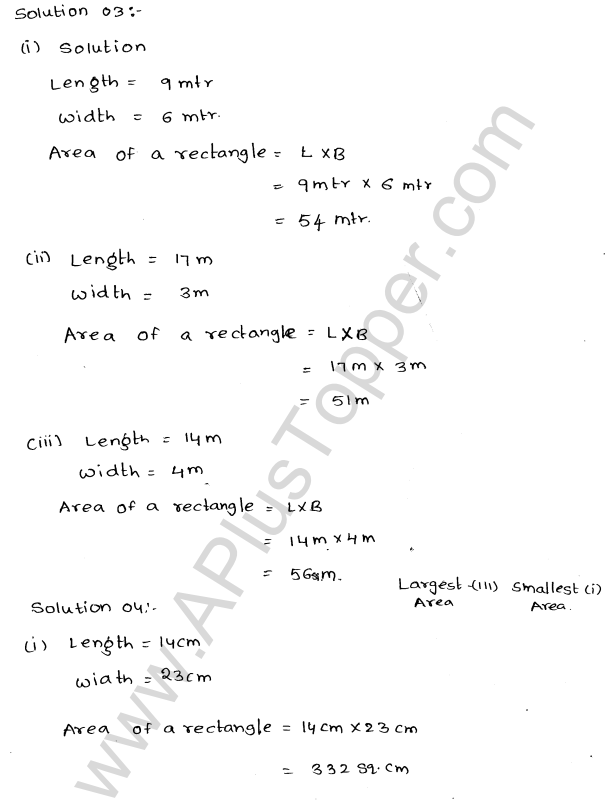 Solution 03:-
(i) Solution
Length = 9 mtr
width = 6 mtr.
Area of a rectangle = L X B
= 9 mtr x 6 mtr
= 54 mtr.
(ii) Length = 17 m
width = 3m
Area of a rectangle = L X B
= 17 m x 3m
= 51 m
(iii) Length = 14 m
width = 4m
Area of a rectangle = L X B
= 14 m x 4 m
= 56 m.
Largest -(III) Smallest (i)
Area Area.
Solution 04:-
(i) Length = 14cm
wiath = 23cm
Area of a rectangle = 14 cm X 23 cm
= 332 sq.cm
www.APlusTopper.com